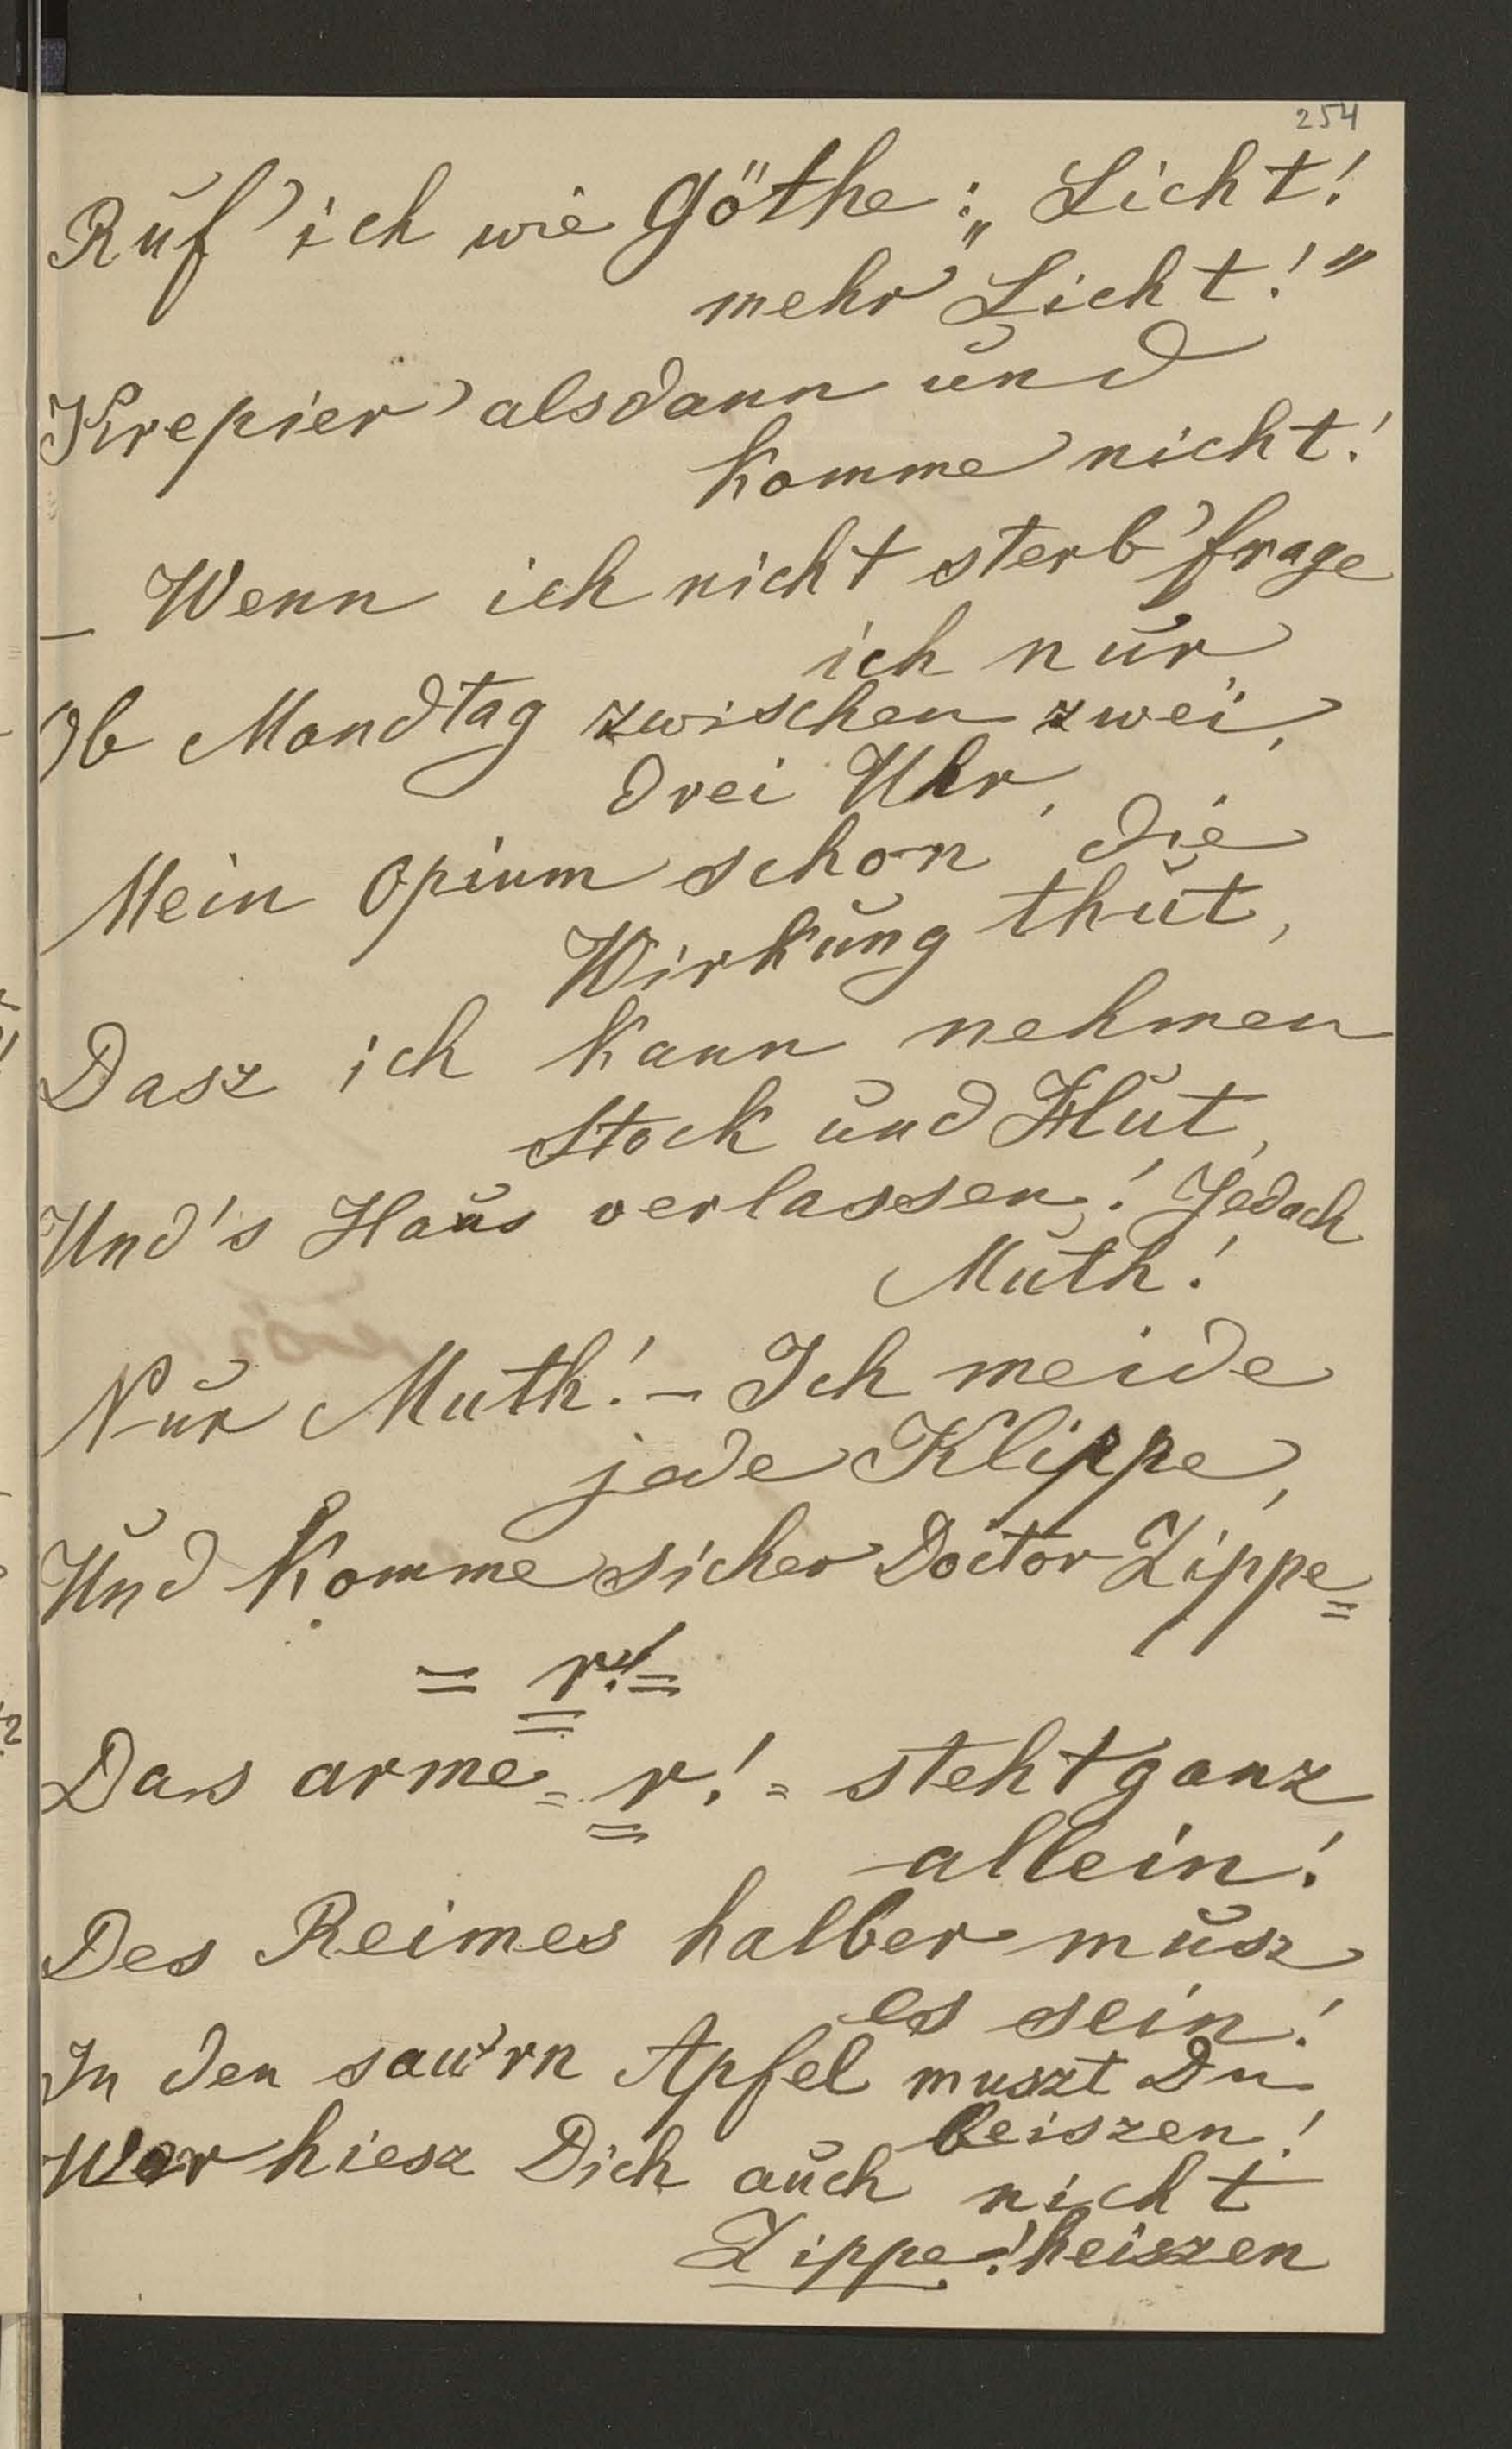 254
Ruf' ich wie Göthe: „Licht!
mehr Licht!"
Krepier' alsdann und
komme nicht!
– Wenn ich nicht sterb' frage
ich nur,
Ob Mondtag zwischen zwei,
drei Uhr,
Mein Opium schon die
Wirkung thut,
Dasz ich kann nehmen
Stock und Hut,
Und's Haus verlassen! Jedoch
Muth!
Nur Muth! – Ich meide
jede Klippe,
Und komme sicher Doctor Zippe=
= r! =
Das arme = r! = steht ganz
allein!
Des Reimes halber musz
es sein!
In den sau'rn Apfel muszt Du
beiszen!
Wer hiesz Dich auch nicht
Zippe! heiszen